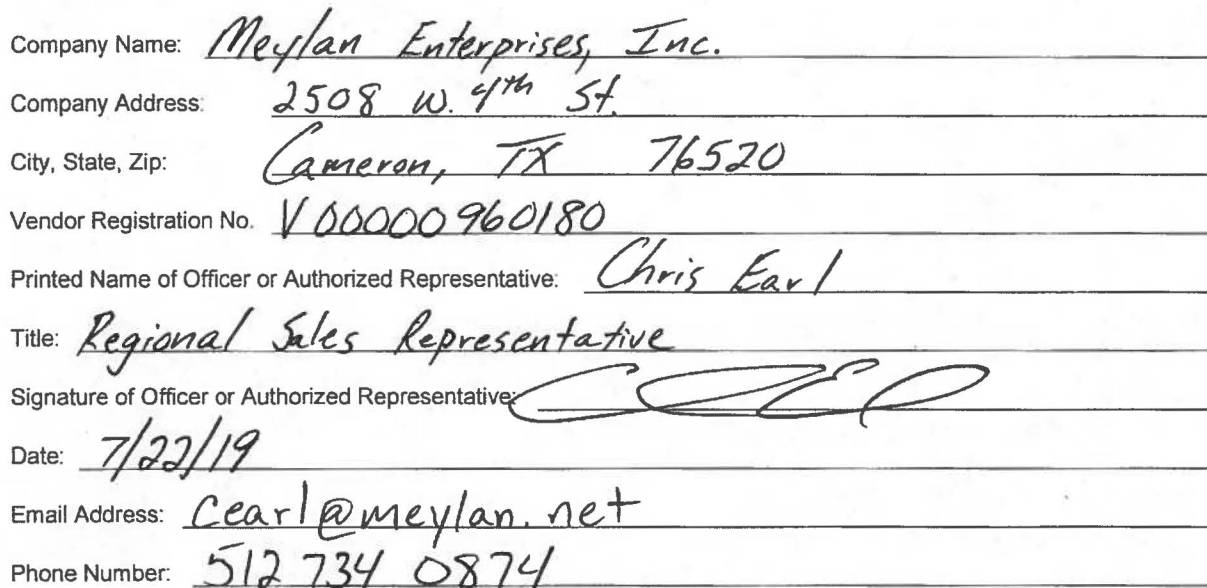 Company Name: Meylan Enterprises, Inc.
Company Address: 2508 W. 4th St.
City, State, Zip: Cameron, TX 76520
Vendor Registration No. V00000960180
Printed Name of Officer or Authorized Representative: Chris Earl
Title: Regional Sales Representative
Signature of Officer or Authorized Representative:
Date: 7/22/19
Email Address: cearl@meylan.net
Phone Number: 512 734 0874